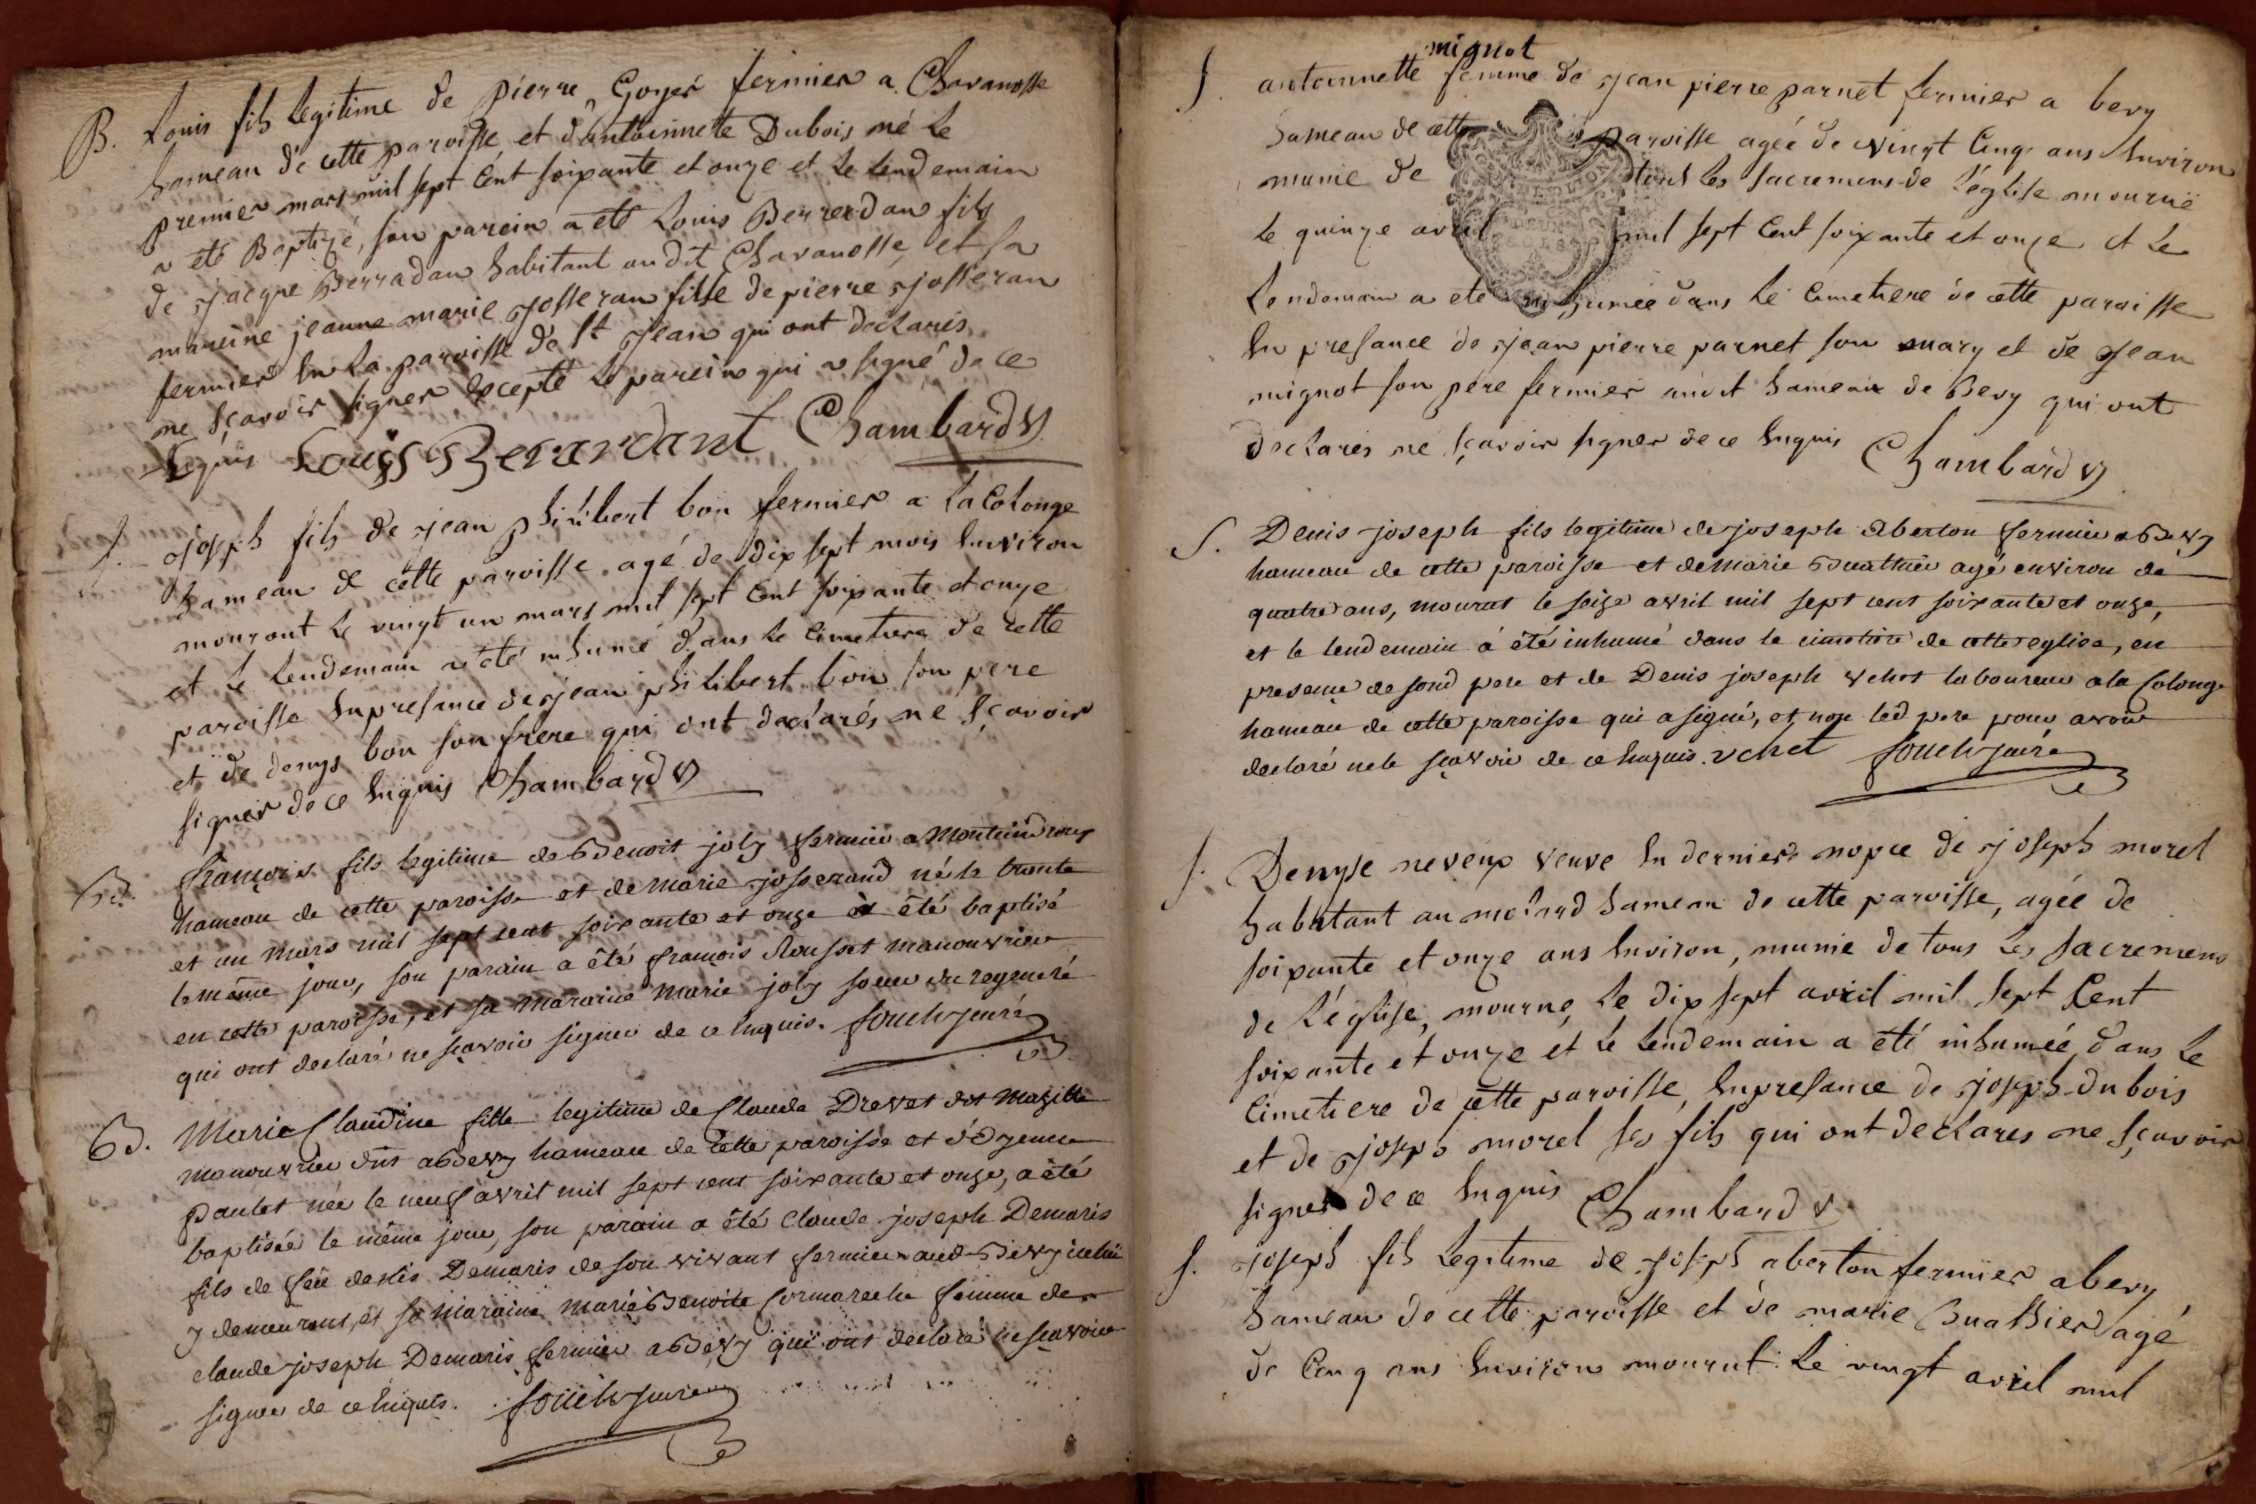 B. Louis fils Legitime de pierre Goyer fermier a Chavanosse
hameau de cette paroisse et d'antoinnette Dubois né Le
premier mars mil sept Cent soixante et onze et Le Lendemain
a eté Baptizé, son parein a eté Louis Berrerdan fils
de Jacque Berradan habitant audit Chavanosse, et sa
mareine jeanne marie josseran fille de pierre josseran
fermier En La paroisse de St jean qui ont declarés
ne sçavoir signer Excepté Le parein qui a signé de ce
Enquis Louis Berardant Chambard V
S. joseph fils de jean philibert bon fermier a La Colonge
hameau de cette paroisse agé de dix sept mois Environ
mourant Le vingt un mars mil sept Cent soixante et onze
et Le Lendemain a eté inhumé dans Le Cimetiere de cette
paroisse En presance de jean philibert bon son pere
et de denys bon son frere qui ont declarés ne sçavoir
signer de ce Enquis Chambard V
B. françois fils legitime de Benoit joly fermier a
hameau de cette paroisse et de Marie josserand né le trente
et un Mars mil sept cent soixante et onze a été baptisé
le même jour, son parain a été françois Rousset manouvrier
en cette paroisse, et sa maraine Marie joly soeur du regeneré
qui ont declaré ne sçavoir signer de ce Enquis.
B. Marie Claudine fille legitime de Claude Drevet dit Mazille
manouvrier aBevy hameau de cette paroisse et d'
Paulet née le neuf avril mil sept cent soixante et onze, a été
baptisée le même jour, son parain a été Claude joseph Demaris
fils de feü denis Demaris de son vivant fermier aud Bevy icelui
y demeurant, et sa Maraine Marie Benoite Cormareche femme de
claude joseph Demaris fermier aBevy qui ont declaré ne sçavoir
signer de ce Enquis.
mignot
S. antoinnette femme de jean pierre parnet fermier a bevy
hameau de cette paroisse agée de vingt Cinq ans Environ
munie de tous les sacremens de L'église mourue
Le quinze avril mil sept Cent soixante et onze et Le
Lendemain a eté inhumée dans Le Cimetiere de cette paroisse
En presance de jean pierre parnet son mary et de jean
mignot son pere fermier audit hameau de Bevy qui ont
declarés ne sçavoir signer de ce Enquis Chambard V
S. Denis joseph fils legitime de joseph Aberton fermier a Bevy
hameau de cette paroisse et de Marie Buathier agé environ de
quatre ans, mourut le seize avril mil sept cent soixante et onze,
et le lendemain a été inhumé dans le cimetiere de cette eglise, en
presence de sond pere et de Denis joseph Vchet laboureur a la Colonge
hameau de cette paroisse qui a signé, et non led pere pour avoir
declaré ne le sçavoir de ce Enquis. Vchet
S. Denyse neveux veuve En derniere nopce de joseph morel
habitant au molard hameau de cette paroisse, agée de
soixante et onze ans Environ, munie de tous Les sacremens
de L'église, mourue Le dix sept avril mil sept Cent
soixante et onze et Le Lendemain a été inhumée, dans Le
Cimetiere de cette paroisse, En presance de joseph dubois
et de joseph morel ses fils qui ont declarés ne sçavoir
signer de ce Enquis Chambard V
S. joseph fils Legitime de joseph aberton fermier a bevy
hameau de cette paroisse et de marie Buathier, agé
de Cinq ans Environ mourut Le vingt avril mil